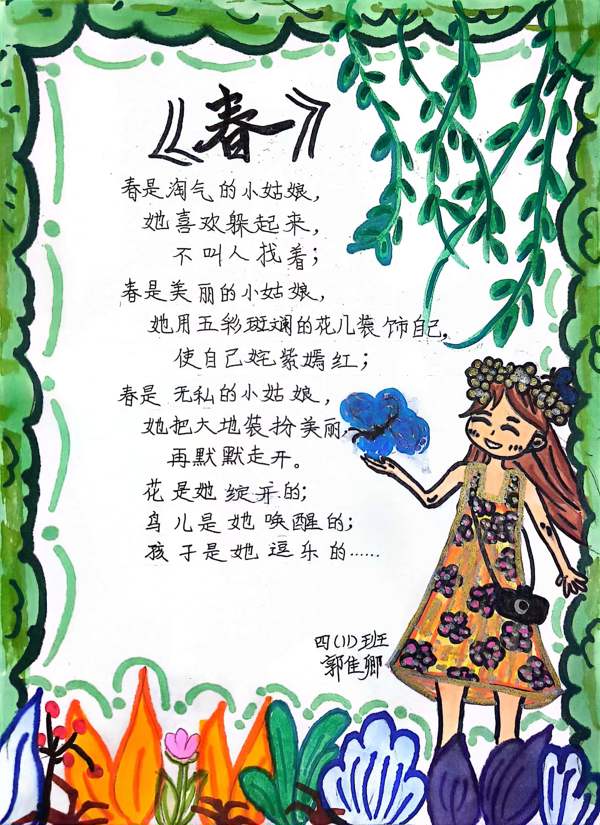 《春》
春是淘气的小姑娘，
她喜欢躲起来，
不叫人找着；
春是美丽的小姑娘，
她用五彩斑斓的花儿装饰自己，
使自己姹紫嫣红；
春是无私的小姑娘，
她把大地装扮美丽，
再默默走开。
花是她绽开的；
鸟儿是她唤醒的；
孩子是她逗乐的……
四（11）班
郭佳卿